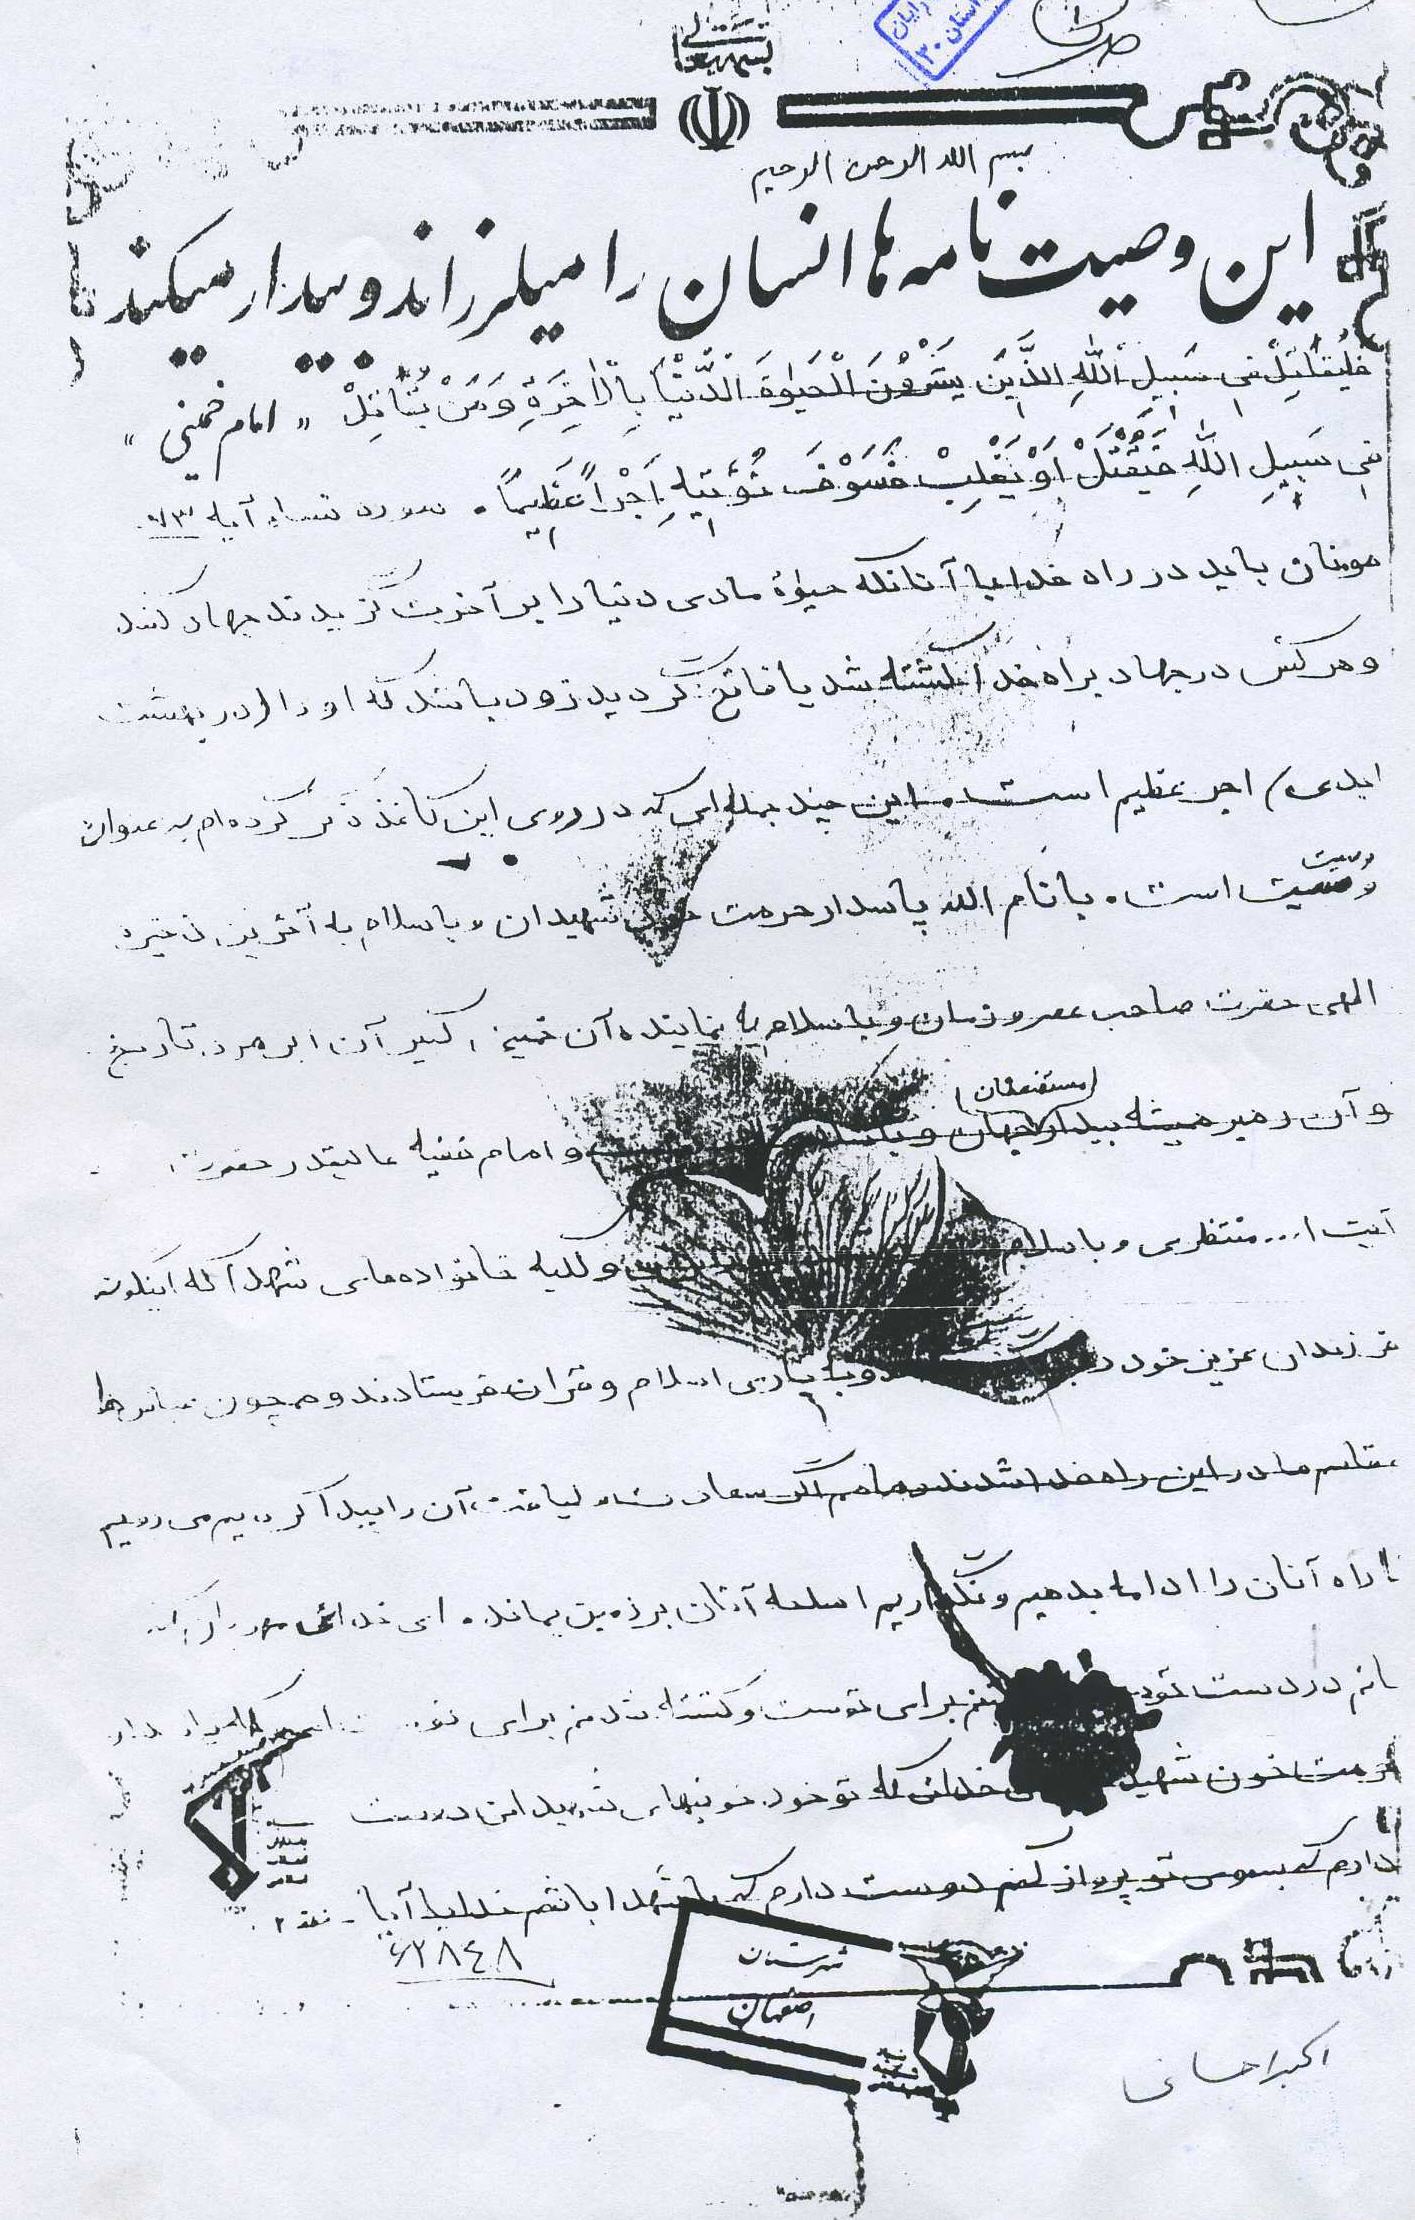 بسمه تعالی
بسم الله الرحمن الرحیم
این وصیت نامه ها انسان را میلرزاند و بیدار میکند
فَلْیُقاتِلْ فی سَبیلِ اللهِ الَّذینَ یَشْرُونَ الْحَیوٰةَ الدُّنْیٰا بِالْاٰخِرَةِ وَ مَنْ یُقٰاتِلْ
« امام خمینی »
فی سَبیلِ اللهِ فَیُقْتَلْ اَوْ یَغْلِبْ فَسَوْفَ نُؤْتیهِ اَجْراً عَظیماً. سوره نساء آیه ۷۳
مومنان باید در راه خدا با آنانکه حیوٰة مادی دنیا را بر آخرت گزیدند جهاد کنند
و هر کس در جهاد براه خدا کشته شد یا فاتح گردید زود باشد که او را (در بهشت
ابدی) اجر عظیم است. این چند جمله ای که در روی این کاغذ ذکر کرده ام به عنوان
وصیت است. با نام الله پاسدار حرمت خون شهیدان و با سلام به آخرین ذخیره
الهی حضرت صاحب عصر و زمان و با سلام به نماینده آن خمینی کبیر آن ابر مرد تاریخ
و آن رهبر همیشه بیدار (مستضعفان) جهان و با سلام و امام فقیه عالیقدر حضرت
آیت ا... منتظری و با سلام و کلیه خانواده های شهدا که اینگونه
فرزندان عزیز خود و به یاری اسلام و قرآن فرستادند و همچون
قاسم ها در این راه فدا شدند و ما هم اگر سعادت و لیاقت آن را پیدا کردیم می رویم
تا راه آنان را ادامه بدهیم و نگذاریم اسلحه آنان بر زمین بماند. ای خدائی
جانم در دست تو برای توست و کشته شدنم برای تو
حرمت خون شهید خدائی که تو خود خونبهای شهیدانی دوست
دارم که بسوی تو پرواز کنم دوست دارم که با شهدا باشم خدایا آیا
۶۲۸۴۸
شهرستان
اصفهان
اکبر